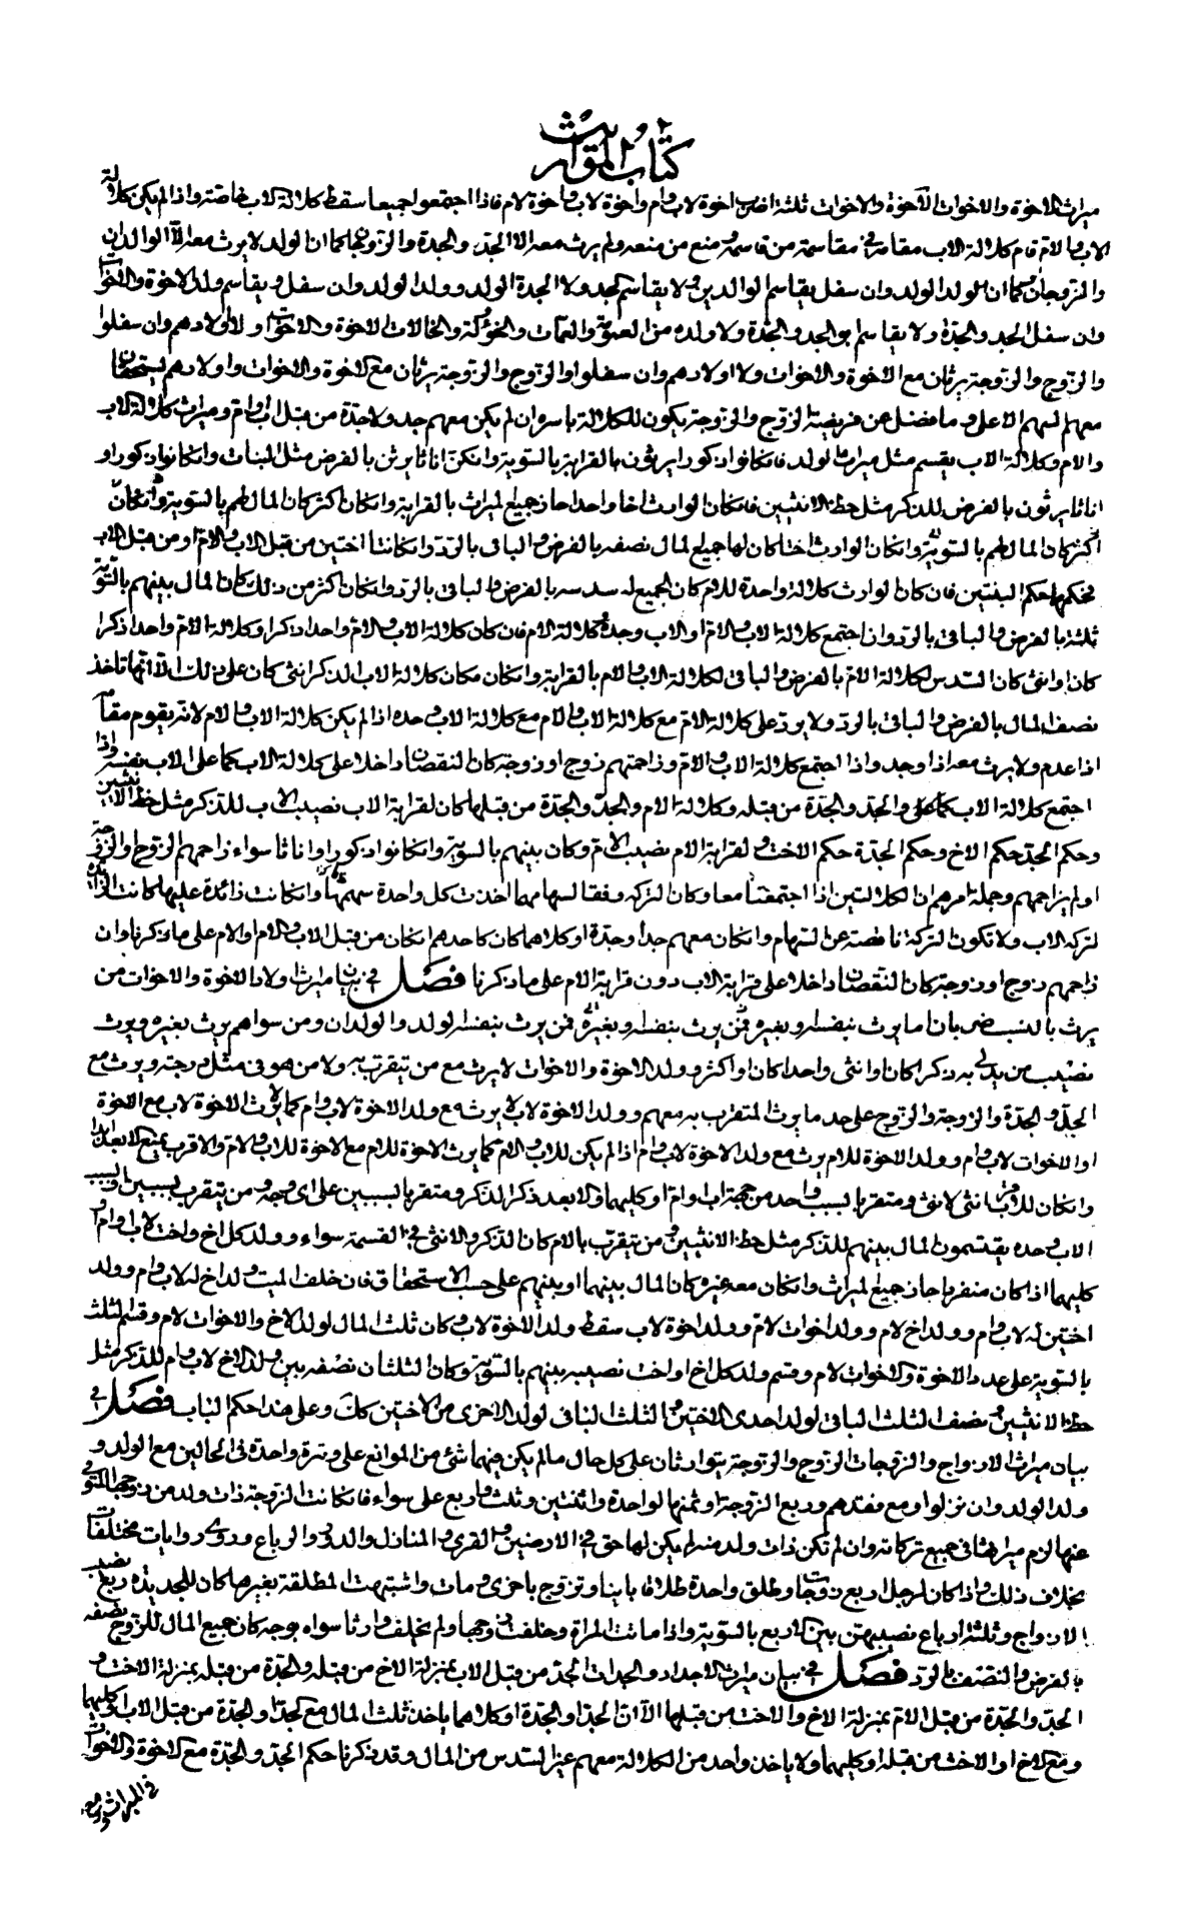 كتاب المواريث
ميراث الاخوة والاخوات الاخوة والاخوات ثلثة اضرب اخوة لاب وام واخوة لاب واخوة لام فاذا اجتمعوا جميعا سقط كلالة الاب خاصة واذا لم يكن كلالة
الاب والام قام كلالة الاب مقامه في مقاسمة من قاسمه ومنع من منعه ولم يرث معه الا الجد والجدة والزوجان كما ان الولد لا يرث معه الا الوالدان
والزوجان وكما ان الولد الولد وان سفل يقاسم الوالدين ولا يقاسم الجد ولا الجدة الولد وولد الولد وان سفل ويقاسم ولد الاخوة والاخوات
وان سفل الجد والجدة ولا يقاسم ابو الجد والجدة ولا ولده من العمومة والعمات والخؤلة والخالات الاخوة والاخوات ولا اولادهم وان سفلوا
والزوج والزوجة يرثان مع الاخوة والاخوات ولا اولادهم وان سفلوا والزوج والزوجة يرثان مع الاخوة والاخوات واولادهم يستحقان
معهم السهم الاعلى وما فضل عن فريضة الزوج والزوجة يكون للكلالة باسره ان لم يكن معهم جد ولا جدة من قبل اب وام وميراث كلالة الاب
والام وكلالة الاب يقسم مثل ميراث الولد فان كانوا ذكورا يرثون بالقرابة بالسوية وان كن اناثا يرثن بالفرض مثل البنات وان كانوا ذكورا و
اناثا يرثون بالفرض للذكر مثل حظ الانثيين فان كان الوارث اخا واحدا حاز جميع الميراث بالقرابة وان كان اكثر كان المال لهم بالسوية وان كان
اكثر كان المال لهم بالسوية وان كان الوارث اختا كان لها جميع المال نصفه بالفرض والباقي بالرد وان كانتا اختين من قبل الاب والام او من قبل الاب
فحكمهما حكم البنتين فان كان الوارث كلالة واحدة للام كان الجميع له سدسه بالفرض والباقي بالرد وان كان اكثر من ذلك كان المال بينهم بالسوية
ثلثه بالفرض والباقي بالرد وان اجتمع كلالة الاب والام او الاب وحده وكلالة الام فان كان كلالة الاب والام واحدا ذكرا وكلالة الام واحدا ذكرا
كان او انثى كان السدس لكلالة الام بالفرض والباقي لكلالة الاب والام بالقرابة وان كان مكان كلالة الاب الذكر انثى كان على ذلك الا انها تاخذ
نصف المال بالفرض والباقي بالرد ولا يرد على كلالة الام مع كلالة الاب والام مع كلالة الاب وحده اذا لم يكن كلالة الاب والام لانه يقوم مقامه
اذا عدم ولا يرث معه اذا وجد واذا اجتمع كلالة الاب والام وزاحمتهم زوج او زوجة كان النقصان داخلا على كلالة الاب كما على الاب نفسه واذا
اجتمع كلالة الاب والجد والجدة من قبله وكلالة الام والجد والجدة من قبلها كان لقرابة الاب نصيب الاب للذكر مثل حظ الانثيين
وحكم الجد حكم الاخ وحكم الجدة حكم الاخت ولقرابة الام نصيب الام وكان بينهم بالسوية وان كانوا ذكورا واناثا سواء زاحمهم الزوج والزوجة
او لم يزاحمهم وجملة امرهم ان الكلالتين اذا اجتمعتا معا وكان التركة وفقا لسهامهما اخذت كل واحدة سهمها وان كانت زائدة عليها كانت الزائدة
لتركة الاب ولا تكون التركة ناقصة عن السهام وان كان معهم جد او جدة او كلاهما كان كاحدهم ان كان من قبل الاب والام او الام على ما ذكرنا وان
زاحمهم زوج او زوجة كان النقصان داخلا على قرابة الاب دون قرابة الام على ما ذكرنا فصل في بيان ميراث اولاد الاخوة والاخوات من
يرث بالنسب ضربان ما يرث بنفسه وبغيره فمن يرث بنفسه وبغيره فمن يرث بنفسه الولد والوالدان ومن سواهم يرث بغيره ويرث
نصيب من يدلي به ذكرا كان او انثى واحدا كان او اكثر وولد الاخوة والاخوات لا يرث مع من يتقرب به ولا من هو في مثل درجته ويرث مع
الجد والجدة والزوجة والزوج على حد ما يرث المتقرب به معهم وولد الاخوة لاب لا يرث مع ولد الاخوة لاب وام كما لا يرث الاخوة لاب مع الاخوة
او الاخوات لاب وام وولد الاخوة للام يرث مع ولد الاخوة لاب وام اذا لم يكن للاب والام كما يرث الاخوة للام مع الاخوة للاب والام والاقرب يمنع الابعد ابدا
وان كان للاقرب انثى لانثى ومتقربا بسبب واحد من جهة اب او ام او كليهما والابعد ذكرا لذكر ومتقربا بسببين على اي وجه ومن يتقرب بسببين وبسبب
الاب وحده يقتسمون المال بينهم للذكر مثل حظ الانثيين ومن يتقرب بالام كان الذكر والانثى في القسمة سواء وولد كل اخ واخت لاب او ام او
كليهما اذا كان منفردا حاز جميع الميراث وان كان معه غيره كان المال بينهما او بينهم على حسب الاستحقاق فان خلف الميت ولد اخ له لاب وام وولد
اختين له لاب وام وولد اخ لام وولد اخوات لام وولد اخوة لاب سقط ولد الاخوة لاب وكان ثلث المال لولد الاخ والاخوات لام وقسم الثلث
بالسوية على عدد الاخوة والاخوات لام وقسم ولد كل اخ او اخت نصيبه بينهم بالسوية وكان الثلثان نصفه بين ولد الاخ لاب وام للذكر مثل
حظ الانثيين ونصف الثلث الباقي لولد احدى الاختين والثلث الباقي لولد الاخرى من الاختين كك وعلى هذا حكم الباب فصل في
بيان ميراث الازواج والزوجات الزوج والزوجة يتوارثان على كل حال ما لم يكن فيهما شئ من الموانع على وتيرة واحدة في الحالين مع الولد و
ولد الولد وان نزلوا ومع فقدهم وربع الزوجة وثمنها لواحدة واثنتين وثلث واربع على سواء فان كانت الزوجة ذات ولد من زوجها المتوفى
عنها لزم ميراثها في جميع تركاته وان لم تكن ذات ولد منه لم يكن لها حق في الارضين والقرى والمنازل والدور والرباع وروى روايات مختلفات
بخلاف ذلك واذا كان لرجل اربع زوجات وطلق واحدة طلاقا باينا وتزوج باخرى ومات واشتبهت المطلقة بغيرها كان للجديدة ربع نصيب
الازواج وثلثة ارباع نصيبهن بين الاربع بالسوية واذا ماتت المراة وخلفت زوجها ولم تخلف وارثا سواه بوجه كان جميع المال للزوج نصفه
بالفرض والنصف بالرد فصل في بيان ميراث الاجداد والجدات الجد من قبل الاب بمنزلة الاخ من قبله والجدة من قبله بمنزلة الاخت و
الجد والجدة من قبل الام بمنزلة الاخ والاخت من قبلها الا ان الجد او الجدة او كلاهما ياخذ ثلث المال مع الجد او الجدة من قبل الاب او كليهما
ومع الاخ او الاخت من قبله او كليهما ولا ياخذ واحد من الكلالة معهم غير السدس من المال وقد ذكرنا حكم الجد والجدة مع الاخوة والاخوات
في الميراث ومع